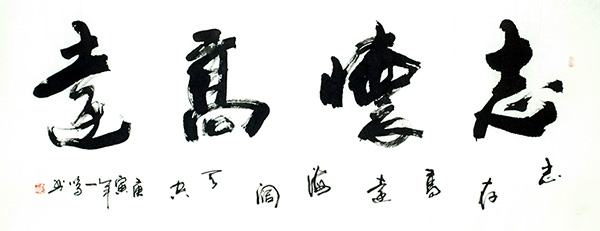 志懷高遠
志存高遠海阔天空
庚寅年一鸣书